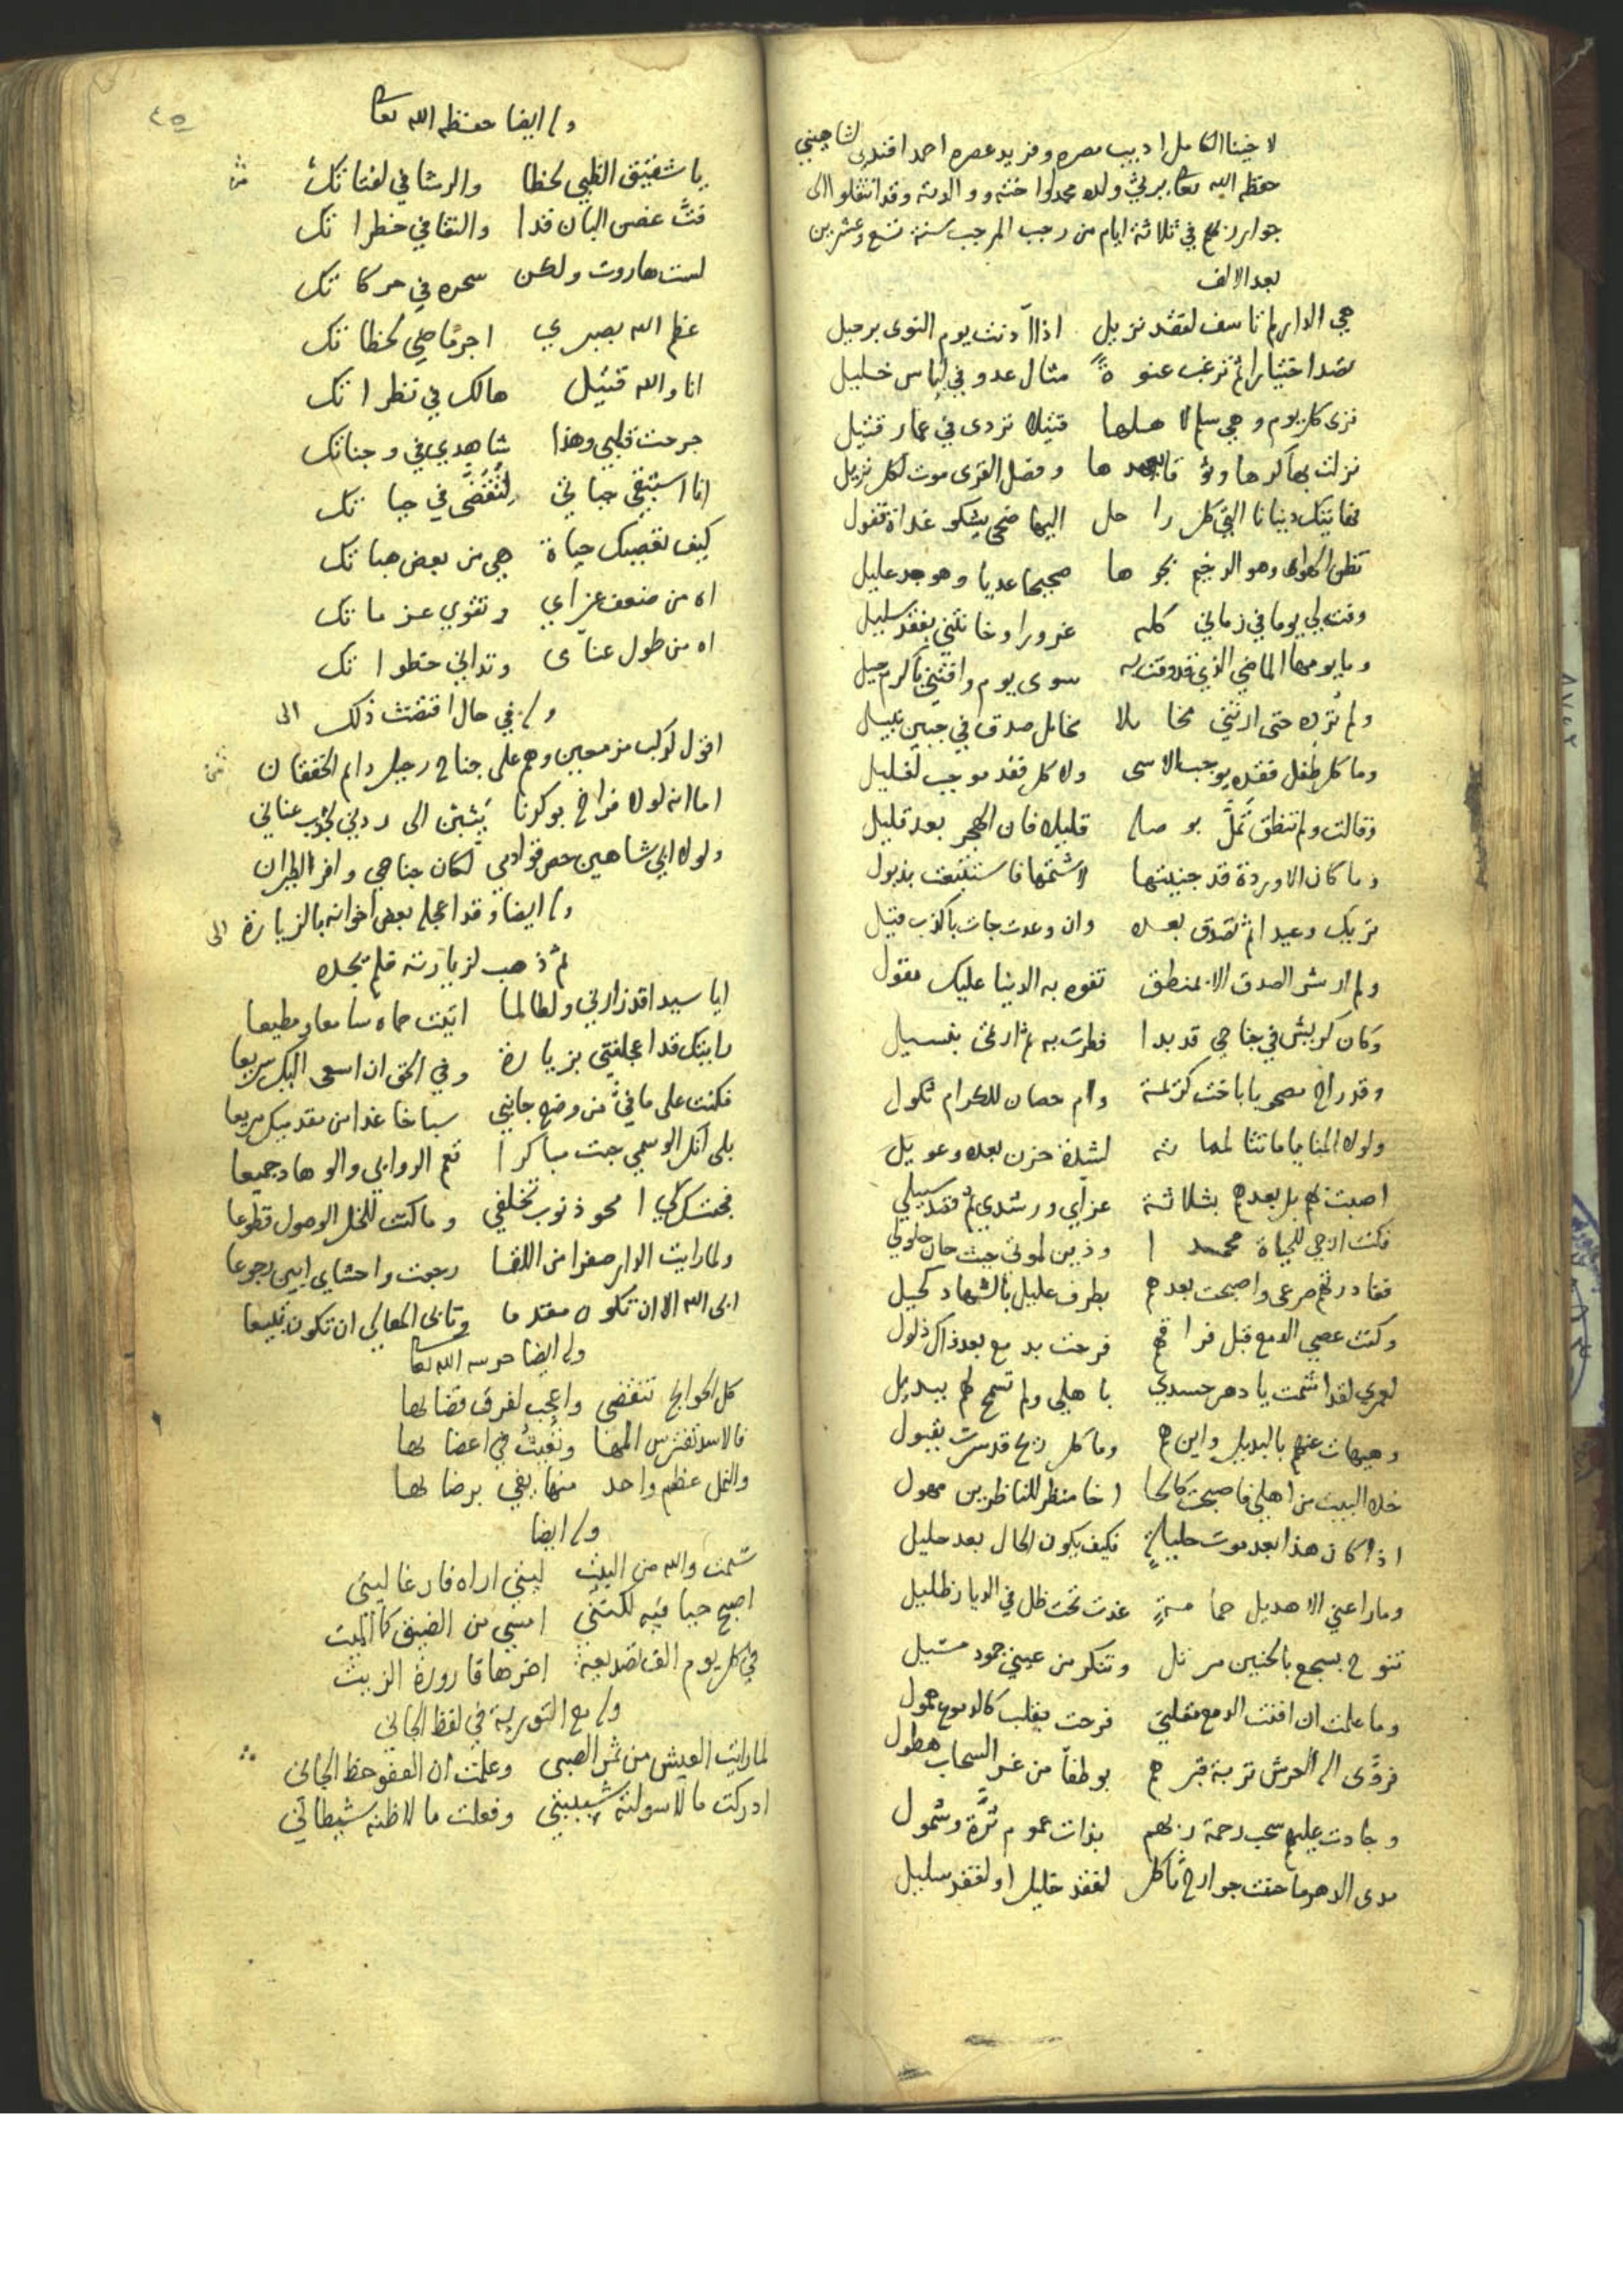 لاخينا الكامل اديب مصره وفريد عصره احمد افندي الشاهيني
حفظه الله تعا يرثي ولده محمدا واخته ووالدته وقد انتقلوا الى
جوار ربهم في ثلاثة ايام من رجب المرجب سنة تسع وعشرين
بعد الالف
هي الدار ما تاسف لفقد نزيل اذا آذنت يوم النوى برحيل
تصد اختيارا ثم ترغب عنوة مثال عدو في لباس خليل
ترى كل يوم وهي سلم لاهلها قتيلا تردى في غمار قتيل
نزلت بها كرها وفضل القرى موت لكل نزيل
دنيانا التي كل راحل اليها ضحى يشكو غداة قفول
صحيحا عديا وهو جد عليل
وفت لي يوما في زماني كله غرورا وخانتني بفقد سليل
وما يومها الماضي الذي قد وفت به سوى يوم وافتني باكرم جيل
ولم تره حتى ارتني مخايلا مخايل صدق في جبين نبيل
وما كل طفل فقده يوجب الاسى ولا كل فقد موجب لغليل
وقالت ولم تنطق تمل بوصله قليلا فان الهجر بعد قليل
وما كان الا وردة قد جنيتها لاشتمها فاستنبتت بذبول
تريك وعيدا ثم تصدق بعده وان وعدت جات باكذب قيل
ولم ار شر الصدق الا بمنطق تفوه به الدنيا عليك مقول
وكان كريش في جناحي قد بدا فطرت به ثم ارتمى بنسيل
وام حصان للكرام ثكول
ولولا المنايا ما تثالمها لشدة حزن بعده وعويل
اصبت بهم بل بعدهم بثلاثة عزاي ورشدي ثم فقد سبيلي
فكنت ارجي للحياة محمدا وذين لموتي حيث حان حلولي
فغادرتهم صرعى واصبحت بعدهم بطرف عليل بالسهاد كحيل
وكنت عصي الدمع قبل فراقهم فرحت بدمع بعد ذاك ذلول
لعمري لقد اشمت يا دهر حسدي باهلي ولم تسمح لهم ببديل
وهيهات عنهم بالبديل واين هم وما كل ريح قد سرت بقبول
خلا البيت من اهلي فاصبحت كالحا اخا منظر للناظرين مهول
اذا كان هذا بعد موت حليلة فكيف يكون الحال بعد حليل
وما راعني الا هديل حمامة غدت تحت ظل في الديار ظليل
تنوح بسجع بالحنين مرتل وتنكر من عيني جود مسيل
وما علمت ان افنت الدمع مقلتي فرحت بقلب كالدموع همول
فروى اله العرش تربة قبرهم بوطفا من غر السحاب هطول
وجادت عليهم سحب رحمة ربهم بذات عموم ثرة وشمول
مدى الدهر ما حنت جوارح ثاكل لفقد خليل او لفقد سليل
٤٥
وله ايضا حفظه الله تعا
يا شقيق الظبي لحظا والرشا في لفتاتك
فت غصن البان قدا والنقا في خطراتك
لست هاروت ولكن سحره في حركاتك
عظم الله بصبري اجر ماضي لحظاتك
انا والله قتيل هالك في نظراتك
جرحت قلبي وهذا شاهدي في وجناتك
انا استبقي حياتي لتقضى في حياتك
كيف تعصيك حياة هي من بعض هباتك
اه من ضعف عزاي وتقوي عزماتك
اه من طول عناي وتداني خطواتك
وله في حال اقتضت ذلك
اقول لركب مزمعين وهم على جناح رحيل دائم الخفقان
اما انه لولا فراخ بوكرنا يثبن الى ردني لجذب عناني
ولولا ابي شاهين حص قوادمي لكان جناحي وافر الطيران
وله ايضا وقد اعجله بعض اخوانه بالزيارة
ثم ذهب لزيارته فلم يجده
ايا سيدا قد زارني ولطالما اتيت حماه سامعا ومطيعا
رايتك قد اعجلتني بزيارة وفي الحق ان اسعى اليك سريعا
فكنت على ما في من وضع جانبي سباخا غدا من مقدميك مريعا
بلى انك الوسمي جت مباكرا تعم الروابي والوهاد جميعا
فجئتك كي امحو ذنوب تخلفي وما كنت للخل الوصول قطوعا
ولما رايت الدار صفرا من اللقا رجعت واحشاي ابين رجوعا
ابى الله الا ان تكون مقدما وتابى المعالي ان تكون تبيعا
وله ايضا حرسه الله تعا
كل الحوايج تنقضي واعجب لفرق قضائها
فالاسد تفترس المها وتعيث في اعضائها
والنمل عظم واحد منها يفي برضائها
وله ايضا
سئمت والله من البيت ليتني اراه فارغا ليتي
اصبح حيا فيه لكنني امسي من الضيق كالميت
في كل يوم الف تصديعة اخرها قارورة الزيت
وله مع التورية في لفظ الجاني
لما رايت العيش من ثمر الصبى وعلمت ان العفو حظ الجاني
ادركت ما لا سولته شبيبتي وفعلت ما لا ظنه شيطاني